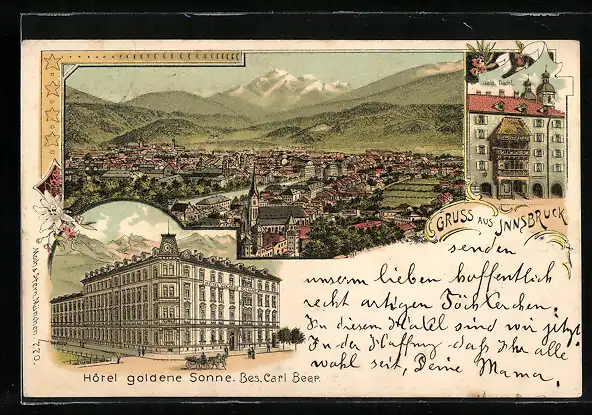 Gold. Dachl.
GRUSS AUS INNSBRUCK
senden
unserm lieben hoffentlich
recht artigen Töchterchen.
In diesem Hôtel sind wir jetzt.
In der Hoffnung daß Ihr alle
wohl seit, Deine Mama.
Hôtel goldene Sonne. Bes. Carl Beer.
Nach & Stern, München. 720.